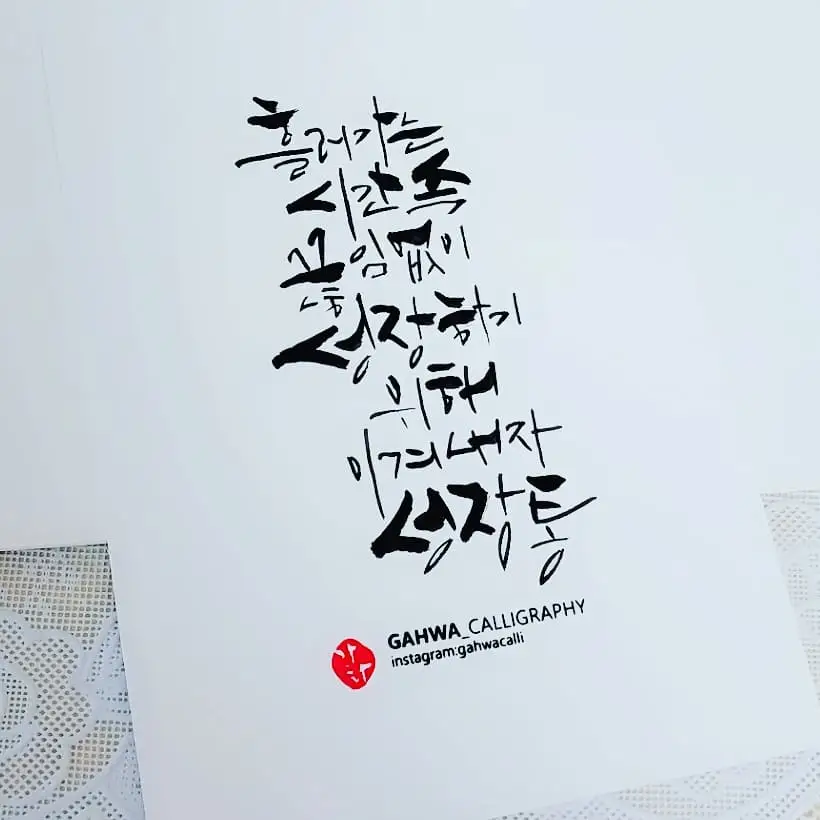 흘러가는
시간속
끊임없이
성장하기
위해
이겨내자
성장통
가화
GAHWA_CALLIGRAPHY
instagram:gahwacalli